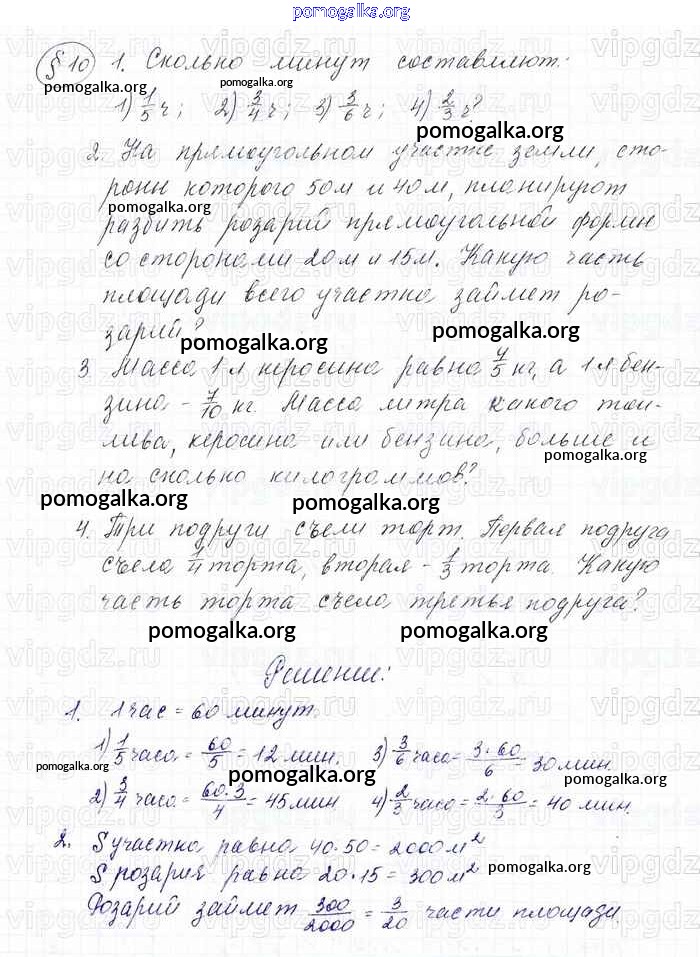 pomogalka.org
§10 1. Сколько минут составляют:
pomogalka.org
1) 1/5 ч; 2) 3/4 ч; 3) 3/6 ч; 4) 2/3 ч?
pomogalka.org
pomogalka.org
2. На прямоугольном участке земли, сто-
роны которого 50 м и 40 м, планируют
pomogalka.org
разбить розарий прямоугольной формы
со сторонами 20 м и 15 м. Какую часть
pomogalka.org
площади всего участка займет ро-
зарий?
pomogalka.org
pomogalka.org
3 Масса 1 л керосина равна 4/5 кг, а 1 л бен-
зина - 7/10 кг. Масса литра какого топ-
лива, керосина или бензина, больше и
pomogalka.org
на сколько килограммов?
pomogalka.org
pomogalka.org
4. Три подруги съели торт. Первая подруга
съела 1/4 торта, вторая - 1/3 торта. Какую
часть торта съела третья подруга?
pomogalka.org
pomogalka.org
Решение:
1. 1 час = 60 минут.
1) 1/5 часа = 60/5 = 12 мин. 3) 3/6 часа = 3·60/6 = 30 мин.
pomogalka.org
pomogalka.org
pomogalka.org
2) 3/4 часа = 60·3/4 = 45 мин 4) 2/3 часа = 2·60/3 = 40 мин.
2. S участка равна 40·50 = 2000 м²
S розария равна 20·15 = 300 м²
pomogalka.org
Розарий займет 300/2000 = 3/20 части площади.
pomogalka.org